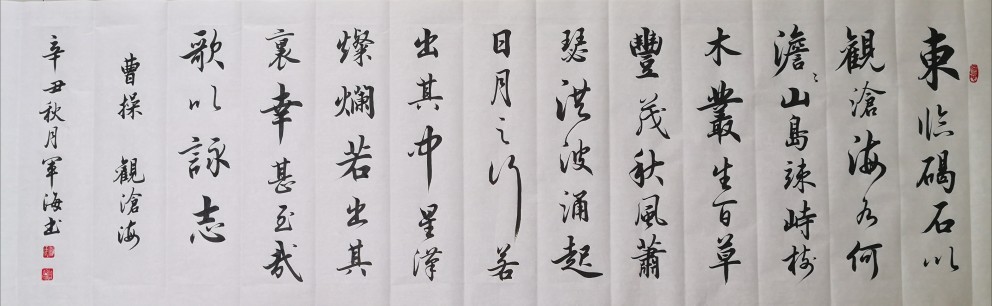 東臨碣石以
觀滄海水何
澹〻山島竦峙樹
木叢生百草
豐茂秋風蕭
瑟洪波涌起
日月之行若
出其中星漢
燦爛若出其
裏幸甚至哉
歌以詠志
曹操 觀滄海
辛丑秋月軍海书